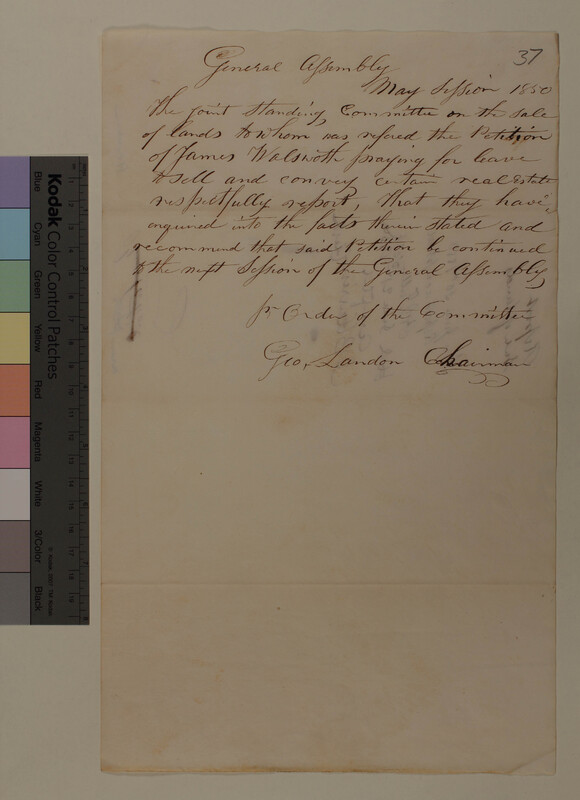 37
General Assembly
May Session 1850
The joint standing Committee on the sale
of lands to whom was refered the Petition
of James Walsworth praying for leave
to sell and convey certain real Estate
respectfully report, that they have
enquired into the facts therein stated and
recommend that said Petition be continued
to the next Session of the General Assembly,
pr Order of the Committee
Geo, Landon Chairman
Kodak Color Control Patches
Blue Cyan Green Yellow Red Magenta White 3/Color Black